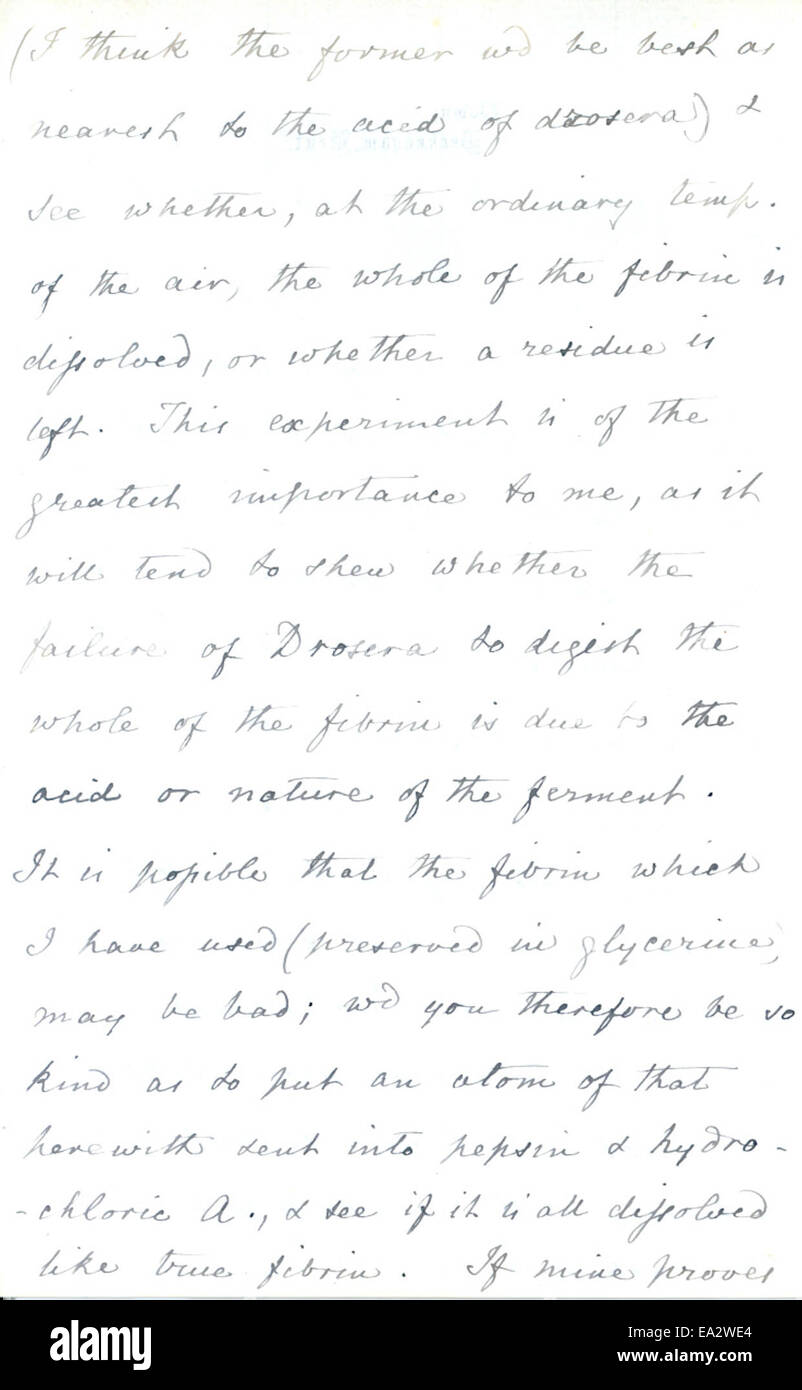 (I think the former wd be best as
nearest to the acid of drosera) &
see whether, at the ordinary temp.
of the air, the whole of the fibrin is
dissolved, or whether a residue is
left. This experiment is of the
greatest importance to me, as it
will tend to shew whether the
failure of Drosera to digest the
whole of the fibrin is due to the
acid or nature of the ferment.
It is possible that the fibrin which
I have used (preserved in glycerine)
may be bad; wd you therefore be so
kind as to put an atom of that
herewith sent into pepsin & hydro-
-chloric A., & see if it is all dissolved
like true fibrin. If mine proves
alamy
Image ID: EA2WE4
www.alamy.com